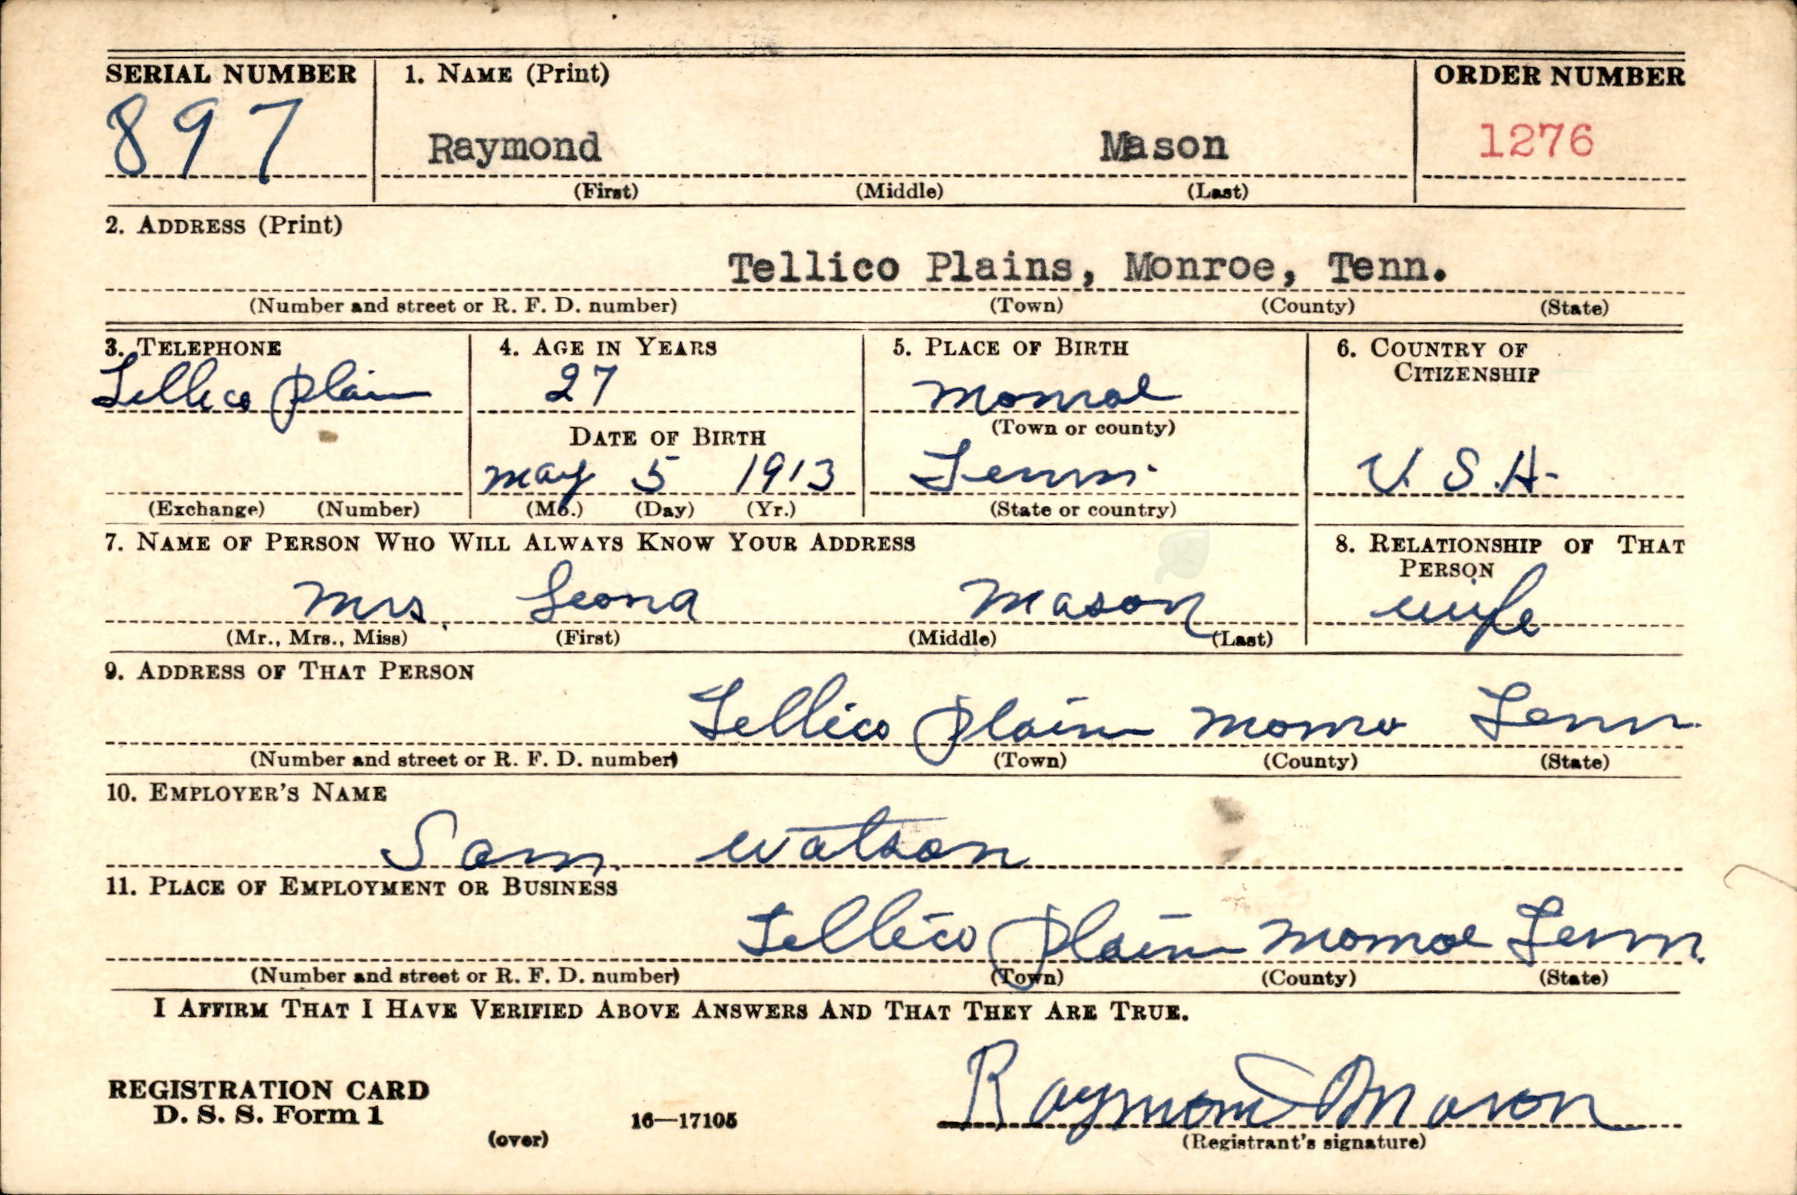 SERIAL NUMBER 1. NAME (Print) ORDER NUMBER
897 Raymond Mason 1276
(First) (Middle) (Last)
2. ADDRESS (Print)
Tellico Plains, Monroe, Tenn.
(Number and street or R. F. D. number) (Town) (County) (State)
3. TELEPHONE 4. AGE IN YEARS 5. PLACE OF BIRTH 6. COUNTRY OF
CITIZENSHIP
Tellico Plain 27 Monroe
(Town or county)
DATE OF BIRTH
May 5 1913 Tenn. U.S.A.
(Exchange) (Number) (Mo.) (Day) (Yr.) (State or country)
7. NAME OF PERSON WHO WILL ALWAYS KNOW YOUR ADDRESS 8. RELATIONSHIP OF THAT
PERSON
Mrs. Leona Mason wife
(Mr., Mrs., Miss) (First) (Middle) (Last)
9. ADDRESS OF THAT PERSON
Tellico Plain Monro Tenn.
(Number and street or R. F. D. number) (Town) (County) (State)
10. EMPLOYER'S NAME
Sam Watson
11. PLACE OF EMPLOYMENT OR BUSINESS
Tellico Plain Monroe Tenn.
(Number and street or R. F. D. number) (Town) (County) (State)
I AFFIRM THAT I HAVE VERIFIED ABOVE ANSWERS AND THAT THEY ARE TRUE.
REGISTRATION CARD
D. S. S. Form 1 16—17105 Raymond Mason
(over) (Registrant's signature)